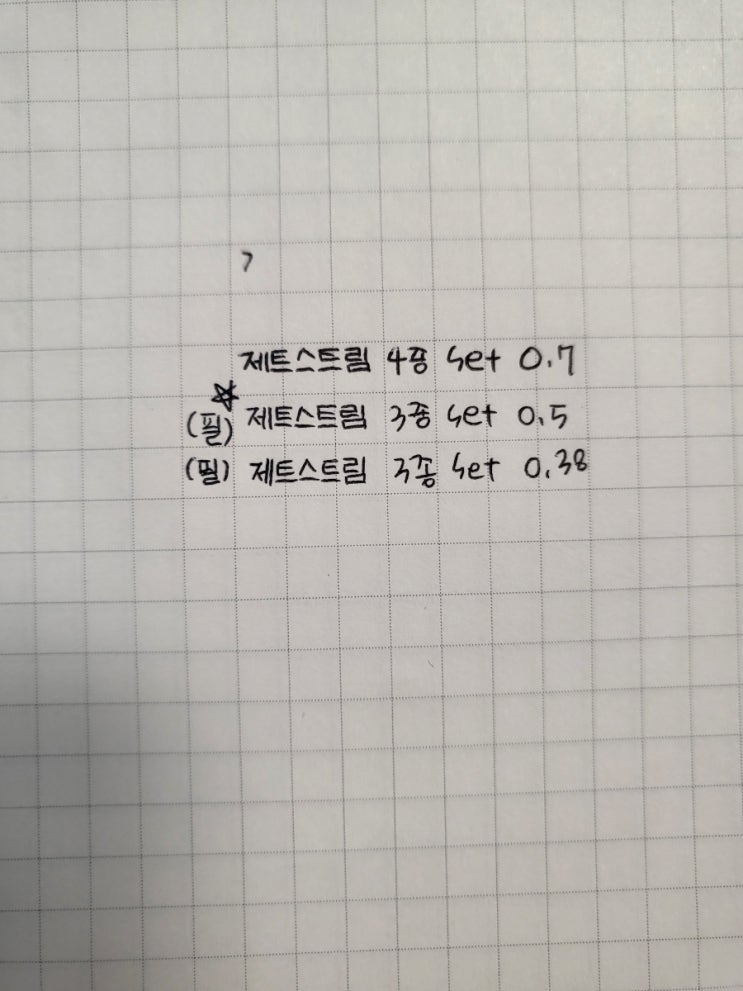 제트스트림 4종 set 0.7
(필) 제트스트림 3종 set 0.5
(필) 제트스트림 3종 set 0.38